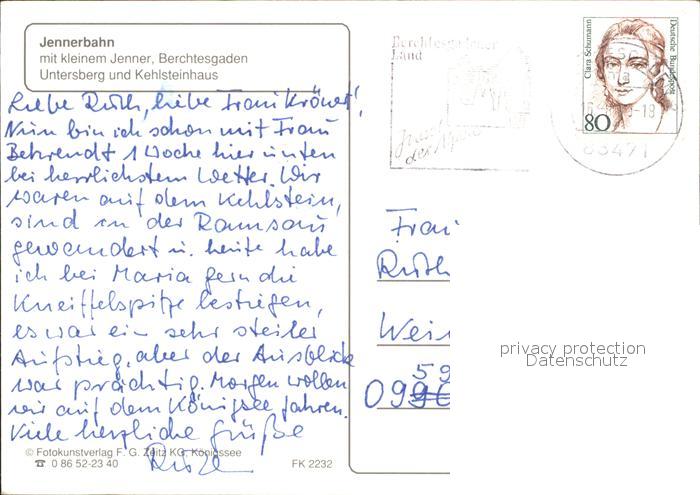 Jennerbahn
mit kleinem Jenner, Berchtesgaden
Untersberg und Kehlsteinhaus
Liebe Ruth, liebe Frau
Nun bin ich schon mit Frau
Behrendt 1 Woche hier unten
bei herrlichstem Wetter. Wir
waren auf dem Kehlstein,
sind in der Ramsau
gewandert u. heute habe
ich bei Maria gern die
Kneiffelspitze bestiegen,
es war ein sehr steiler
Aufstieg, aber der Ausblick
war prächtig. Morgen wollen
wir auf dem Königsee fahren.
Viele herzliche Grüße
© Fotokunstverlag F. G. Zeitz KG, Königssee
☎ 0 86 52-23 40
FK 2232
Berchtesgadener
Land
Clara Schumann
Deutsche Bundespost
80
83471
Frau
Ruth
Wei
59
099
privacy protection
Datenschutz